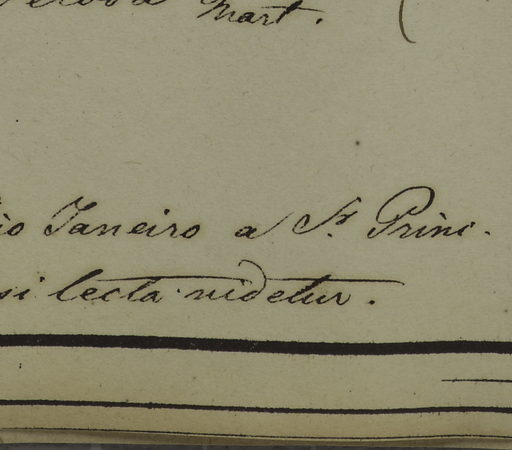 Mart. (
io Janeiro a Sr. Princ.
si lecta videtur.